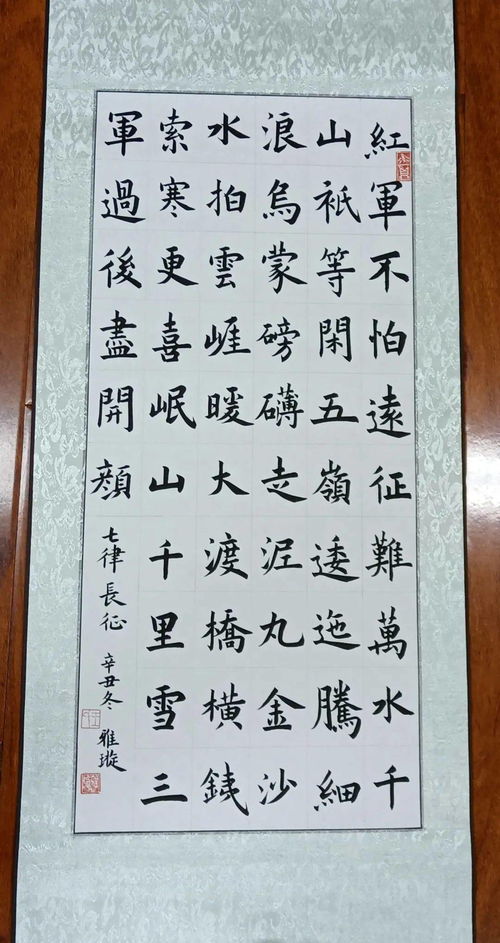 紅軍不怕遠征難萬水千
山祇等閑五嶺逶迤騰細
浪烏蒙磅礴走泥丸金沙
水拍雲崕暖大渡橋橫銕
索寒更喜岷山千里雪三
軍過後盡開顏
七律長征 辛丑冬 雅璇